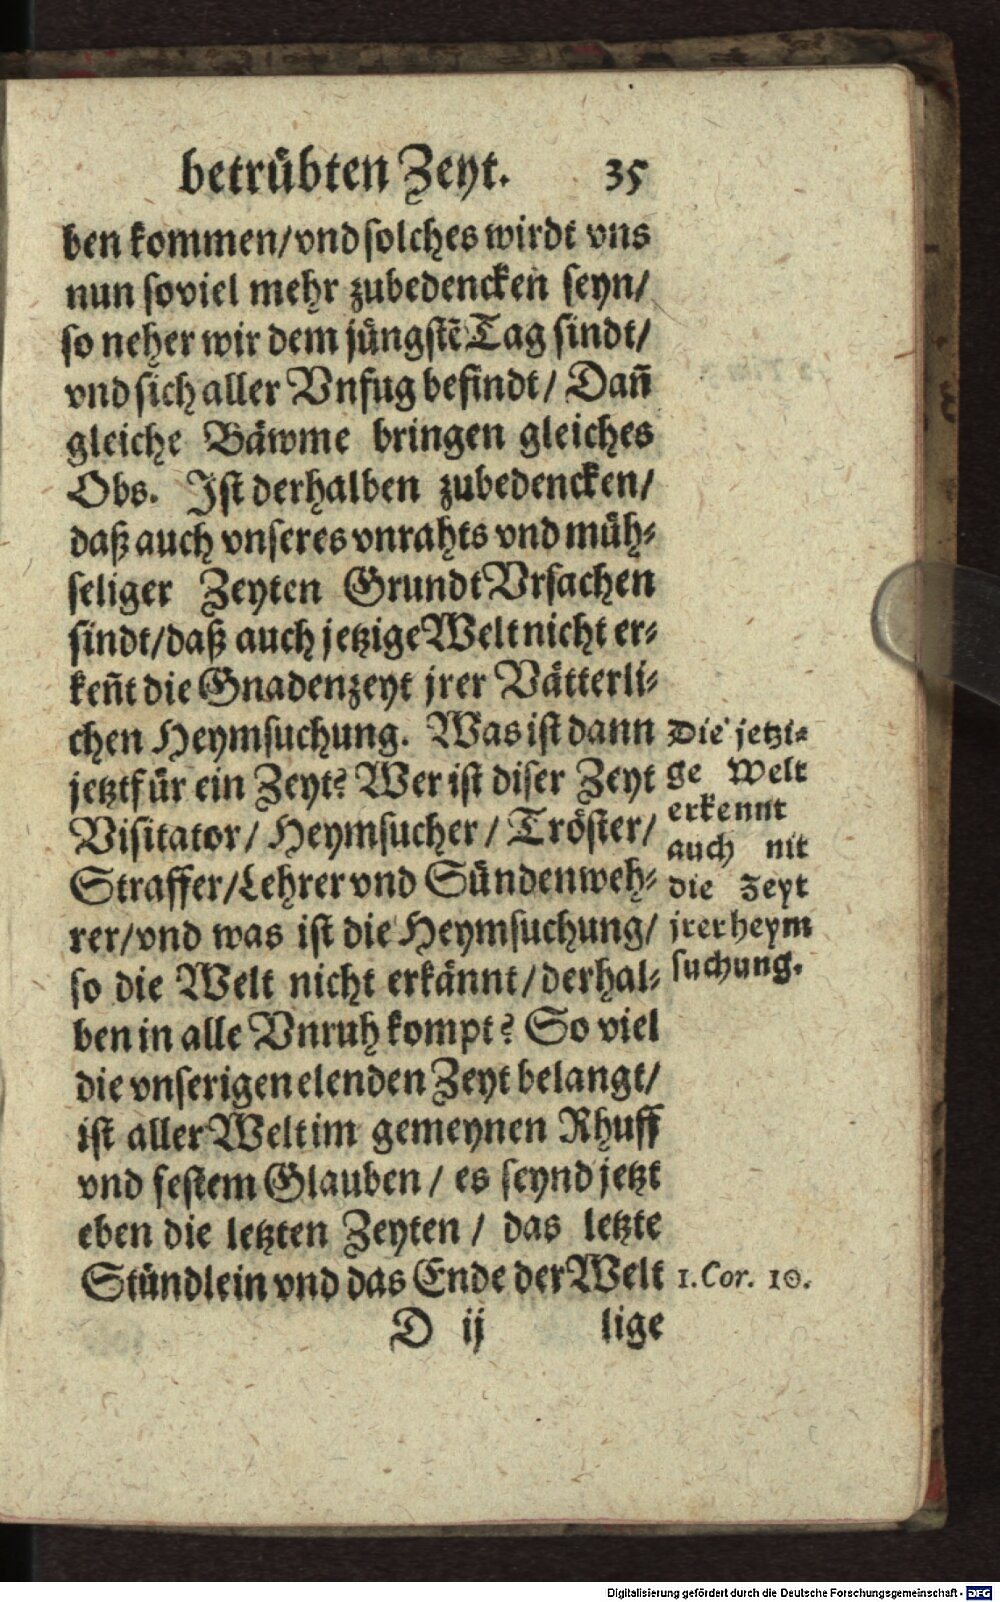 betrübten Zeyt. 35
ben kommen/vnd solches wirdt vns
nun soviel mehr zubedencken seyn/
so neher wir dem jüngstē Tag sindt/
vnd sich aller Vnfug befindt/ Dañ
gleiche Bäwme bringen gleiches
Obs. Ist derhalben zubedencken/
daß auch vnseres vnrahts vnd müh-
seliger Zeyten Grundt Vrsachen
sindt/daß auch jetzige Welt nicht er-
keñt die Gnadenzeyt jrer Vätterli-
chen Heymsuchung. Was ist dann
jetzt für ein Zeyt? Wer ist diser Zeyt
Visitator/ Heymsucher/ Tröster/
Straffer/Lehrer vnd Sündenweh-
rer/vnd was ist die Heymsuchung/
so die Welt nicht erkännt/derhal-
ben in alle Vnruh kompt? So viel
die vnserigen elenden Zeyt belangt/
ist aller Welt im gemeynen Rhuff
vnd festem Glauben/ es seynd jetzt
eben die letzten Zeyten/ das letzte
Stündlein vnd das Ende der Welt
D ij lige
Die jetzi-
ge Welt
erkennt
auch nit
die Zeyt
jrer heym
suchung.
1. Cor. 10.
Digitalisierung gefördert durch die Deutsche Forschungsgemeinschaft - DFG